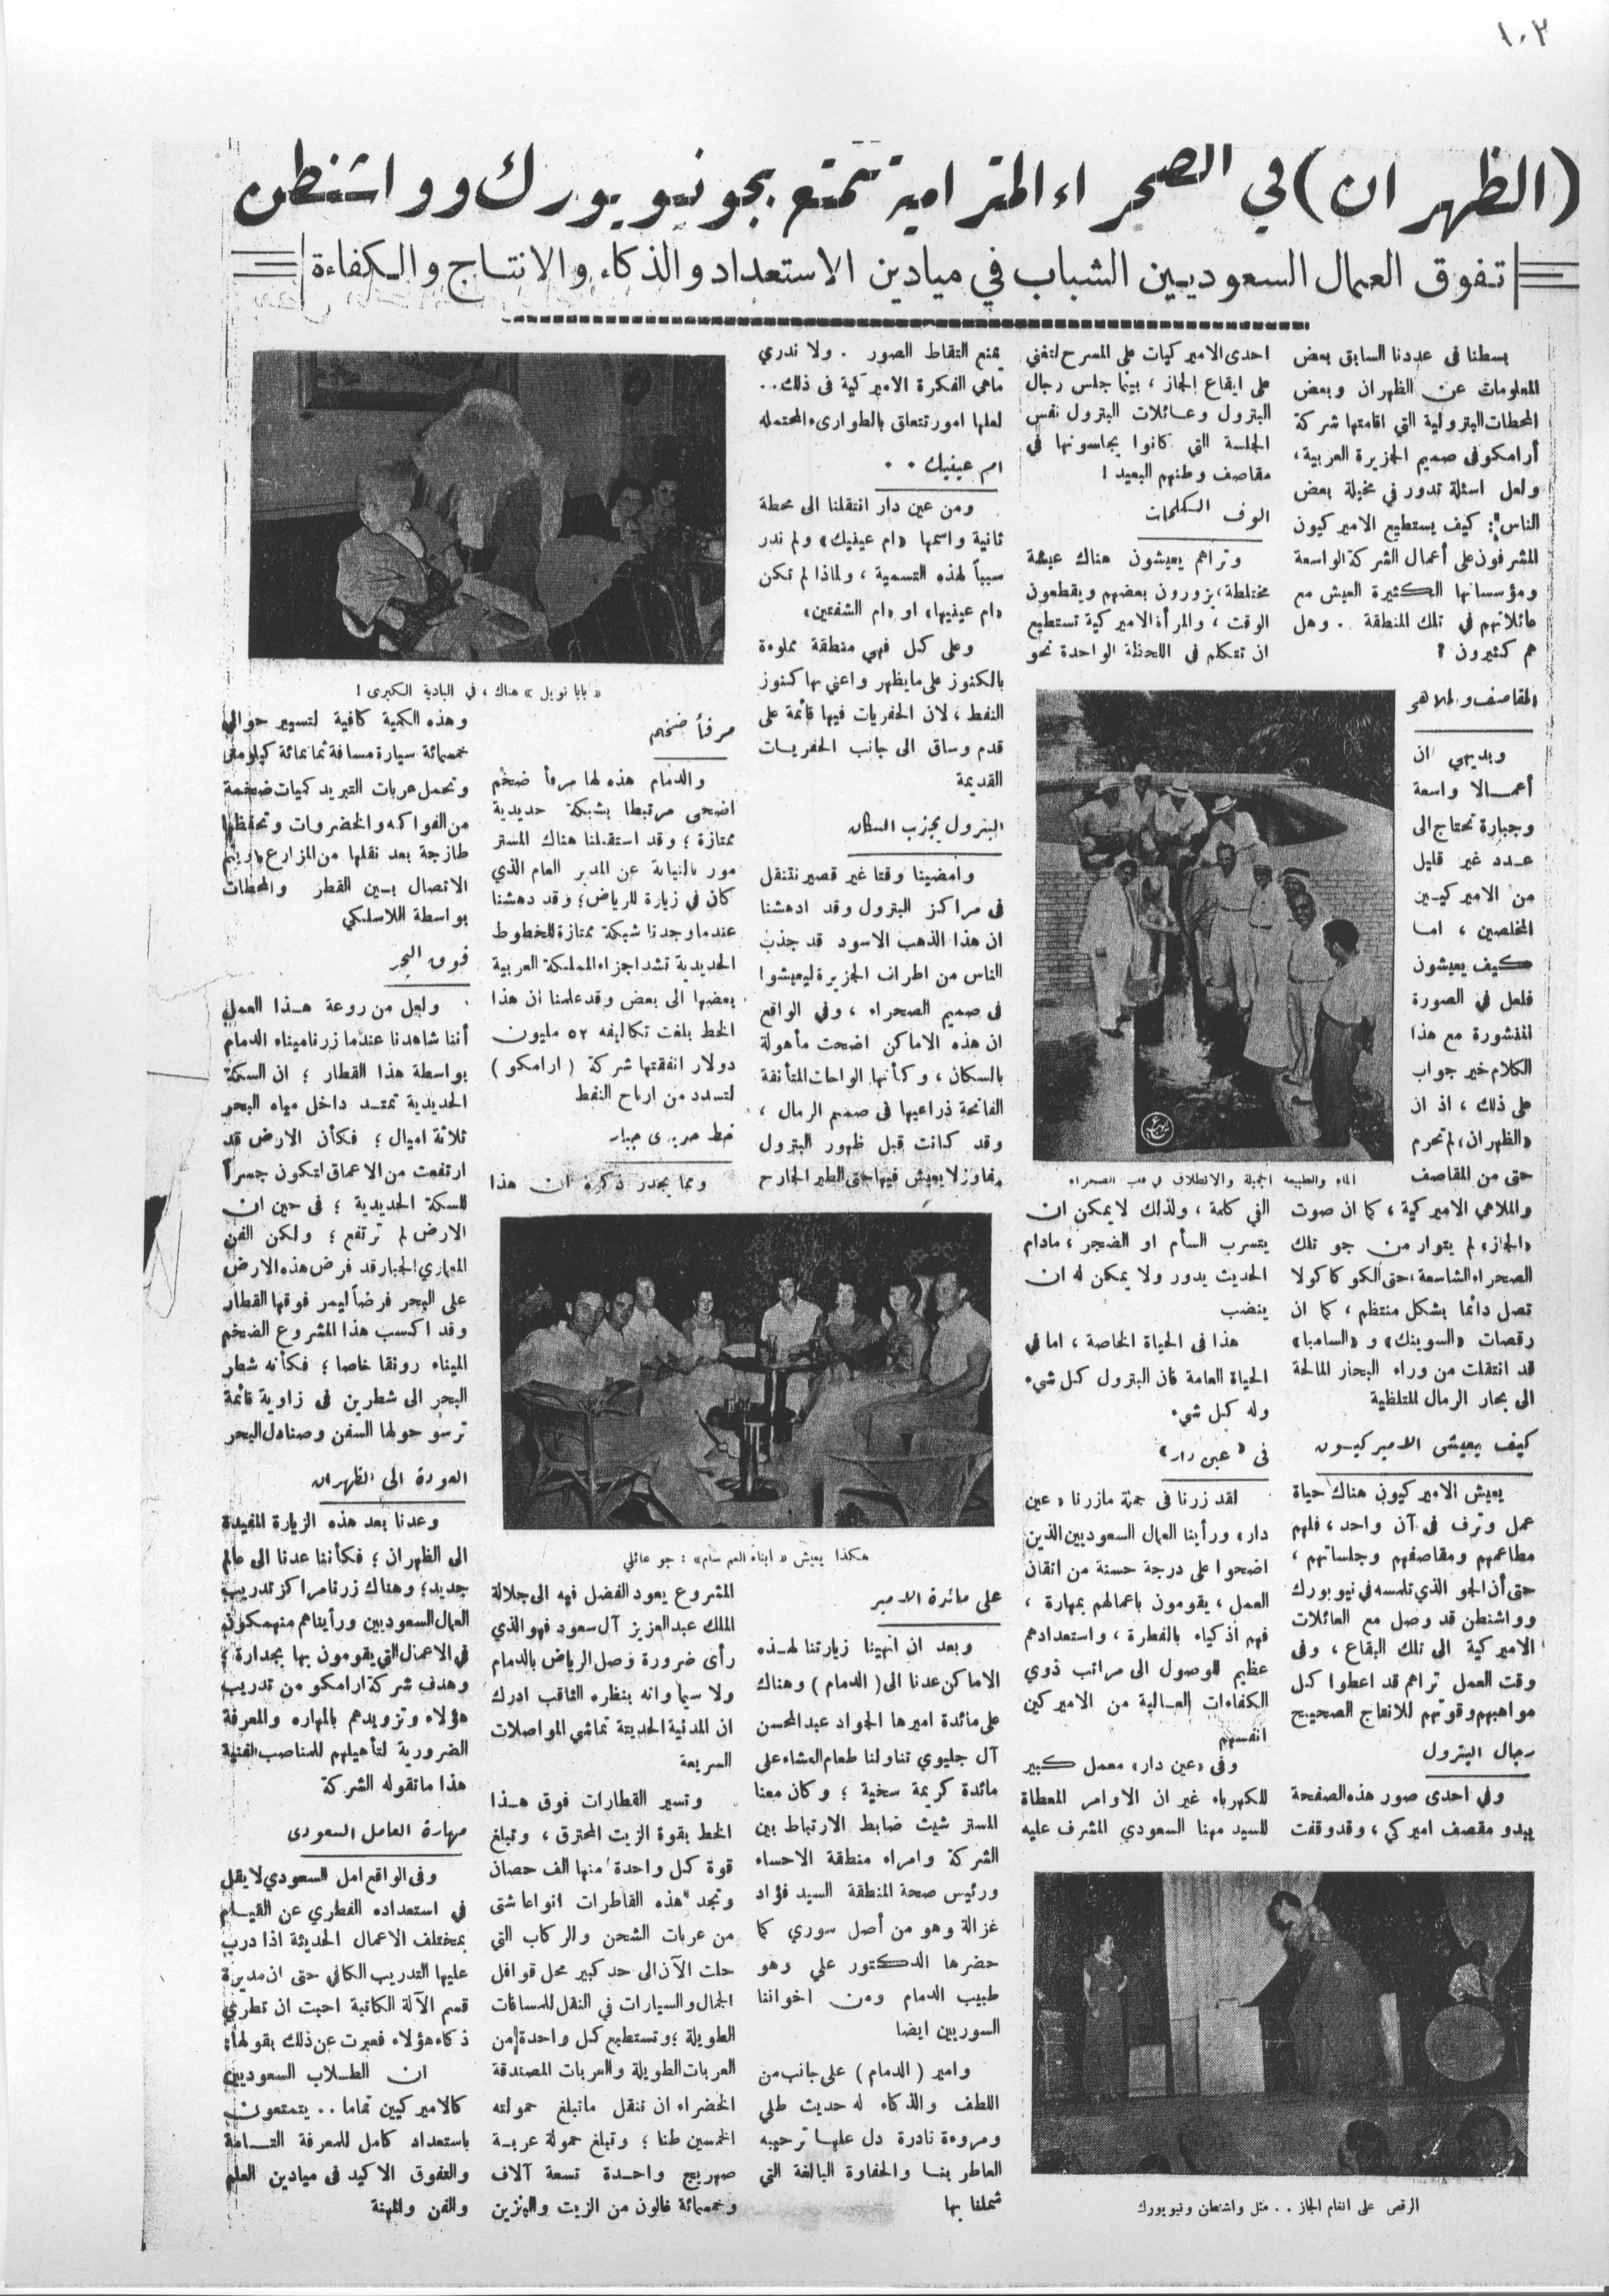 ١٠٢
(الظهران) في الصحراء المترامية تتمتع بجو نيويورك وواشنطن
تفوق العمال السعوديين الشباب في ميادين الاستعداد والذكاء والانتاج والكفاءة
بسطنا فى عددنا السابق بعض
المعلومات عن الظهران وبعض
المحطات البترولية التي اقامتها شركة
أرامكو فى صميم الجزيرة العربية ،
ولعل اسئلة تدور في مخيلة بعض
الناس : كيف يستطيع الاميركيون
المشرفون على أعمال الشركة الواسعة
ومؤسساتها الكثيرة العيش مع
عائلاتهم في تلك المنطقة . وهل
هم كثيرون ؟
المقاصف والملاهي
وبديهي ان
أعمالا واسعة
وجبارة تحتاج الى
عدد غير قليل
من الاميركيين
المخلصين ، اما
كيف يعيشون
فلعل في الصورة
المنشورة مع هذا
الكلام خير جواب
على ذلك ، اذ ان
«الظهران» لم تحرم
حتى من المقاصف
والملاهي الاميركية ، كما ان صوت
«الجاز» لم يتوار من جو تلك
الصحراء الشاسعة ، حتى الكوكا كولا
تصل دائما بشكل منتظم ، كما ان
رقصات «السوينك» و «السامبا»
قد انتقلت من وراء البحار المالحة
الى بحار الرمال المتلظية
كيف يعيش الاميركيون
يعيش الاميركيون هناك حياة
عمل وترف فى آن واحد ، فلهم
مطاعمهم ومقاصفهم وجلساتهم ،
حتى أن الجو الذي تلمسه في نيويورك
وواشنطن قد وصل مع العائلات
الاميركية الى تلك البقاع ، وفى
وقت العمل تراهم قد اعطوا كل
مواهبهم وقوتهم للانتاج الصحيح
رجال البترول
وفي احدى صور هذه الصفحة
يبدو مقصف اميركي ، وقد وقفت
احدى الاميركيات على المسرح لتغني
على ايقاع الجاز ، بينما جلس رجال
البترول وعائلات البترول نفس
الجلسة التي كانوا يجلسونها في
مقاصف وطنهم البعيد !
الوف الكلمات
وتراهم يعيشون هناك عيشة
مختلطة ، يزورون بعضهم ويقطعون
الوقت ، والمرأة الاميركية تستطيع
ان تتكلم في اللحظة الواحدة نحو
الماء والطبيعة الجميلة والانطلاق في قلب الصحراء
الفي كلمة ، ولذلك لا يمكن ان
يتسرب السأم او الضجر ، مادام
الحديث يدور ولا يمكن له ان
ينضب
هذا فى الحياة الخاصة ، اما في
الحياة العامة فان البترول كل شيء
وله كل شيء
فى «عين دار»
لقد زرنا فى جملة مازرنا «عين
دار» ورأينا العمال السعوديين الذين
اضحوا على درجة حسنة من اتقان
العمل ، يقومون باعمالهم بمهارة ،
فهم اذكياء بالفطرة ، واستعدادهم
عظيم للوصول الى مراتب ذوي
الكفاءات العالية من الاميركين
انفسهم
وفى «عين دار» معمل كبير
للكهرباء غير ان الاوامر المعطاة
للسيد مهنا السعودي المشرف عليه
الرقص على انغام الجاز . . مثل واشنطن ونيويورك
يمنع التقاط الصور . ولا ندري
ماهي الفكرة الاميركية فى ذلك ..
لعلها امور تتعلق بالطوارىء المحتمله
ام عينيك . .
ومن عين دار انتقلنا الى محطة
ثانية واسمها «ام عينيك» ولم ندر
سبباً لهذه التسمية ، ولماذا لم تكن
«ام عينيها» او «ام الشفتين»
وعلى كل فهي منطقة مملوءة
بالكنوز على مايظهر واعني بها كنوز
النفط ، لان الحفريات فيها قائمة على
قدم وساق الى جانب الحفريات
القديمة
البترول يجذب السكان
وامضينا وقتا غير قصير نتنقل
فى مراكز البترول وقد ادهشنا
ان هذا الذهب الاسود قد جذب
الناس من اطراف الجزيرة ليعيشوا
فى صميم الصحراء ، وفي الواقع
ان هذه الاماكن اضحت مأهولة
بالسكان ، وكأنها الواحات المتأنقة
الفاتحة ذراعيها فى صميم الرمال ،
وقد كانت قبل ظهور البترول
مفاوز لا يعيش فيها حتى الطير الجارح
هكذا يعيش « ابناء العم سام » : جو عائلي
على مائدة الامير
وبعد ان انهينا زيارتنا لهذه
الاماكن عدنا الى ( الدمام ) وهناك
على مائدة اميرها الجواد عبد المحسن
آل جليوي تناولنا طعام العشاء على
مائدة كريمة سخية ؛ وكان معنا
المستر شيث ضابط الارتباط بين
الشركة وامراء منطقة الاحساء
ورئيس صحة المنطقة السيد فؤاد
غزالة وهو من أصل سوري كما
حضرها الدكتور علي وهو
طبيب الدمام ومن اخواننا
السوريين ايضا
وامير ( الدمام ) على جانب من
اللطف والذكاء له حديث طلي
ومروءة نادرة دل عليها ترحيبه
العاطر بنا والحفاوة البالغة التي
شملنا بها
« بابا نويل » هناك ، في البادية الكبرى !
مرفأ ضخم
والدمام هذه لها مرفأ ضخم
اضحى مرتبطا بشبكة حديدية
ممتازة ؛ وقد استقبلنا هناك المستر
مور بالنيابة عن المدير العام الذي
كان في زيارة للرياض ؛ وقد دهشنا
عندما وجدنا شبكة ممتازة للخطوط
الحديدية تشد اجزاء المملكة العربية
بعضها الى بعض وقد علمنا ان هذا
الخط بلغت تكاليفه ٥٢ مليون
دولار انفقتها شركة ( ارامكو )
لتسدد من ارباح النفط
خط حديدي جبار
ومما يجدر ذكره ان هذا
المشروع يعود الفضل فيه الى جلالة
الملك عبد العزيز آل سعود فهو الذي
رأى ضرورة وصل الرياض بالدمام
ولا سيما وانه بنظره الثاقب ادرك
ان المدنية الحديثة تماشي المواصلات
السريعة
وتسير القطارات فوق هذا
الخط بقوة الزيت المحترق ، وتبلغ
قوة كل واحدة منها الف حصان
وتجد هذه القاطرات انواعا شتى
من عربات الشحن والركاب التي
حلت الآن الى حد كبير محل قوافل
الجمال والسيارات في النقل للمسافات
الطويلة ؛ وتستطيع كل واحدة من
العربات الطويلة والعربات المصندقة
الخضراء ان تنقل ماتبلغ حمولته
الخمسين طنا ؛ وتبلغ حمولة عربة
صهريج واحدة تسعة آلاف
وخمسمائة غالون من الزيت والبنزين
وهذه الكمية كافية لتسيير حوالي
خمسمائة سيارة مسافة ثمانمائة كيلو متر
وتحمل عربات التبريد كميات ضخمة
من الفواكه والخضروات وتحفظها
طازجة بعد نقلها من المزارع ويتم
الاتصال بين القطر والمحطات
بواسطة اللاسلكي
فوق البحر
ولعل من روعة هذا العمل
أننا شاهدنا عندما زرنا ميناء الدمام
بواسطة هذا القطار ؛ ان السكة
الحديدية تمتد داخل مياه البحر
ثلاثة اميال ؛ فكأن الارض قد
ارتفعت من الاعماق لتكون جسراً
للسكة الحديدية ؛ فى حين ان
الارض لم ترتفع ؛ ولكن الفن
المعماري الجبار قد فرض هذه الارض
على البحر فرضاً ليمر فوقها القطار
وقد اكسب هذا المشروع الضخم
الميناء رونقا خاصا ؛ فكأنه شطر
البحر الى شطرين فى زاوية قائمة
ترسو حولها السفن وصنادل البحر
العودة الى الظهران
وعدنا بعد هذه الزيارة المفيدة
الى الظهران ؛ فكأننا عدنا الى عالم
جديد ؛ وهناك زرنا مراكز تدريب
العمال السعوديين ورأيناهم منهمكون
في الاعمال التي يقومون بها بجدارة ؛
وهدف شركة ارامكو من تدريب
هؤلاء وتزويدهم بالمهاره والمعرفة
الضرورية لتأهيلهم للمناصب الفنية
هذا ماتقوله الشركة
مهارة العامل السعودى
وفى الواقع امل السعودي لا يقل
في استعداده الفطري عن القيام
بمختلف الاعمال الحديثة اذا درب
عليها التدريب الكافي حتى ان مديرة
قسم الآلة الكاتبة احبت ان تطري
ذكاء هؤلاء فعبرت عن ذلك بقولها :
ان الطلاب السعوديين
كالاميركيين تماما .. يتمتعون
باستعداد كامل للمعرفة التامة
والتفوق الاكيد فى ميادين العلم
والفن والمهنة